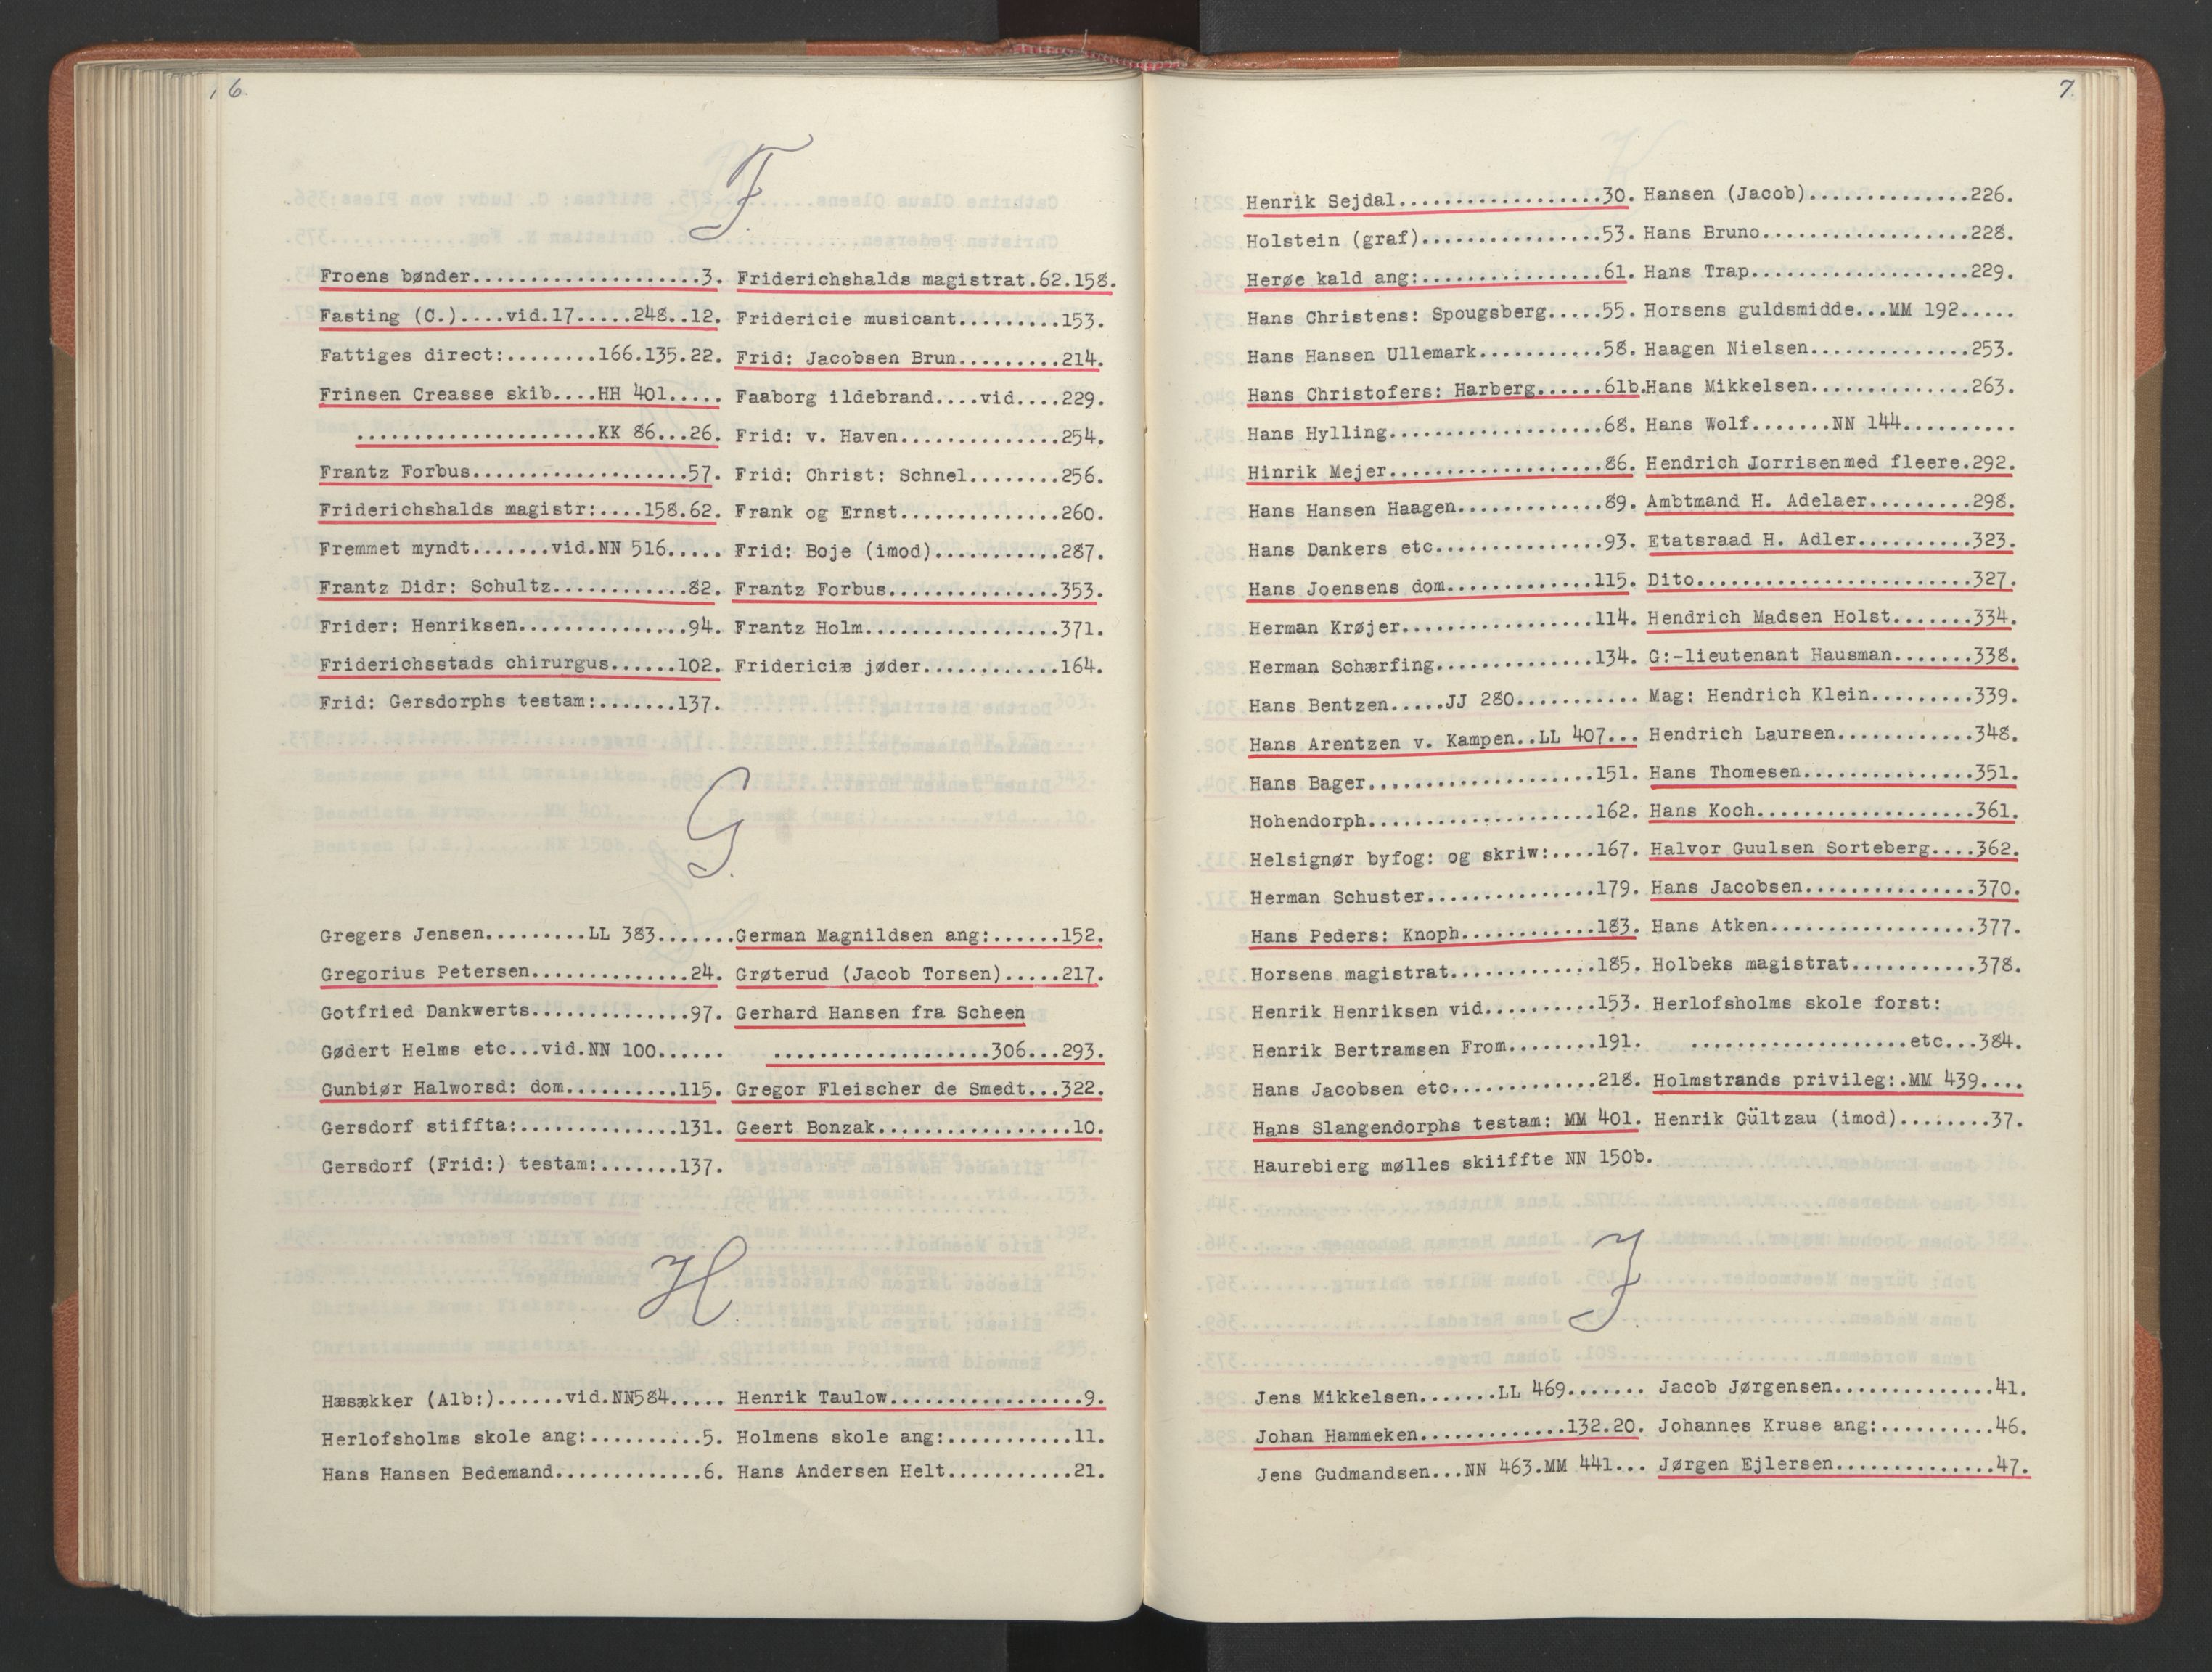 6.
F.
Froens bønder....................3.
Fasting (C.)....vid.17.....248..12.
Fattiges direct:........166.135.22.
Frinsen Creasse skib....HH 401.....
.....................KK 86...26.
Frantz Forbus...................57.
Friderichshalds magistr:....158.62.
Fremmet myndt.......vid.NN 516.....
Frantz Didr: Schultz............82.
Frider: Henriksen...............94.
Friderichsstads chirurgus......102.
Frid: Gersdorphs testam:.......137.
Friderichshalds magistrat.62.158.
Fridericie musicant.........153.
Frid: Jacobsen Brun.........214.
Faaborg ildebrand....vid....229.
Frid: v. Haven..............254.
Frid: Christ: Schnel........256.
Frank og Ernst..............260.
Frid: Boje (imod)...........287.
Frantz Forbus...............353.
Frantz Holm.................371.
Fridericiæ jøder............164.
G.
Gregers Jensen.........LL 383.......
Gregorius Petersen..............24.
Gotfried Dankwerts..............97.
Gødert Helms etc...vid.NN 100......
Gunbiør Halworsd: dom..........115.
Gersdorf stiffta:..............131.
Gersdorf (Frid:) testam:.......137.
German Magnildsen ang:......152.
Grøterud (Jacob Torsen).....217.
Gerhard Hansen fra Scheen
...................306...293.
Gregor Fleischer de Smedt...322.
Geert Bonzak.................10.
H.
Hæsækker (Alb:)......vid.NN584.....
Herlofsholms skole ang:..........5.
Hans Hansen Bedemand.............6.
Henrik Taulow.................9.
Holmens skole ang:...........11.
Hans Andersen Helt...........21.
7.
Henrik Sejdal..................30.
Holstein (graf)................53.
Herøe kald ang:................61.
Hans Christens: Spougsberg.....55.
Hans Hansen Ullemark...........58.
Hans Christofers: Harberg......61b.
Hans Hylling...................68.
Hinrik Mejer...................86.
Hans Hansen Haagen.............89.
Hans Dankers etc...............93.
Hans Joensens dom.............115.
Herman Krøjer.................114.
Herman Schærfing..............134.
Hans Bentzen.....JJ 280...........
Hans Arentzen v. Kampen..LL 407...
Hans Bager....................151.
Hohendorph....................162.
Helsignør byfog: og skriw:....167.
Herman Schuster...............179.
Hans Peders: Knoph............183.
Horsens magistrat.............185.
Henrik Henriksen vid..........153.
Henrik Bertramsen From........191.
Hans Jacobsen etc.............218.
Hans Slangendorphs testam: MM 401.
Haurebierg mølles skiiffte NN 150b.
Hansen (Jacob)..............226.
Hans Bruno..................228.
Hans Trap...................229.
Horsens guldsmidde...MM 192.....
Haagen Nielsen..............253.
Hans Mikkelsen..............263.
Hans Wolf.......NN 144..........
Hendrich Jorrisenmed fleere.292.
Ambtmand H. Adelaer.........298.
Etatsraad H. Adler..........323.
Dito........................327.
Hendrich Madsen Holst.......334.
G:-lieutenant Hausman.......338.
Mag: Hendrich Klein.........339.
Hendrich Laursen............348.
Hans Thomesen...............351.
Hans Koch...................361.
Halvor Guulsen Sorteberg....362.
Hans Jacobsen...............370.
Hans Atken..................377.
Holbeks magistrat...........378.
Herlofsholms skole forst:
...................etc...384.
Holmstrands privileg:.MM 439....
Henrik Gültzau (imod)........37.
J.
Jens Mikkelsen.......LL 469.......
Johan Hammeken.............132.20.
Jens Gudmandsen...NN 463.MM 441...
Jacob Jørgensen..............41.
Johannes Kruse ang:..........46.
Jørgen Ejlersen..............47.